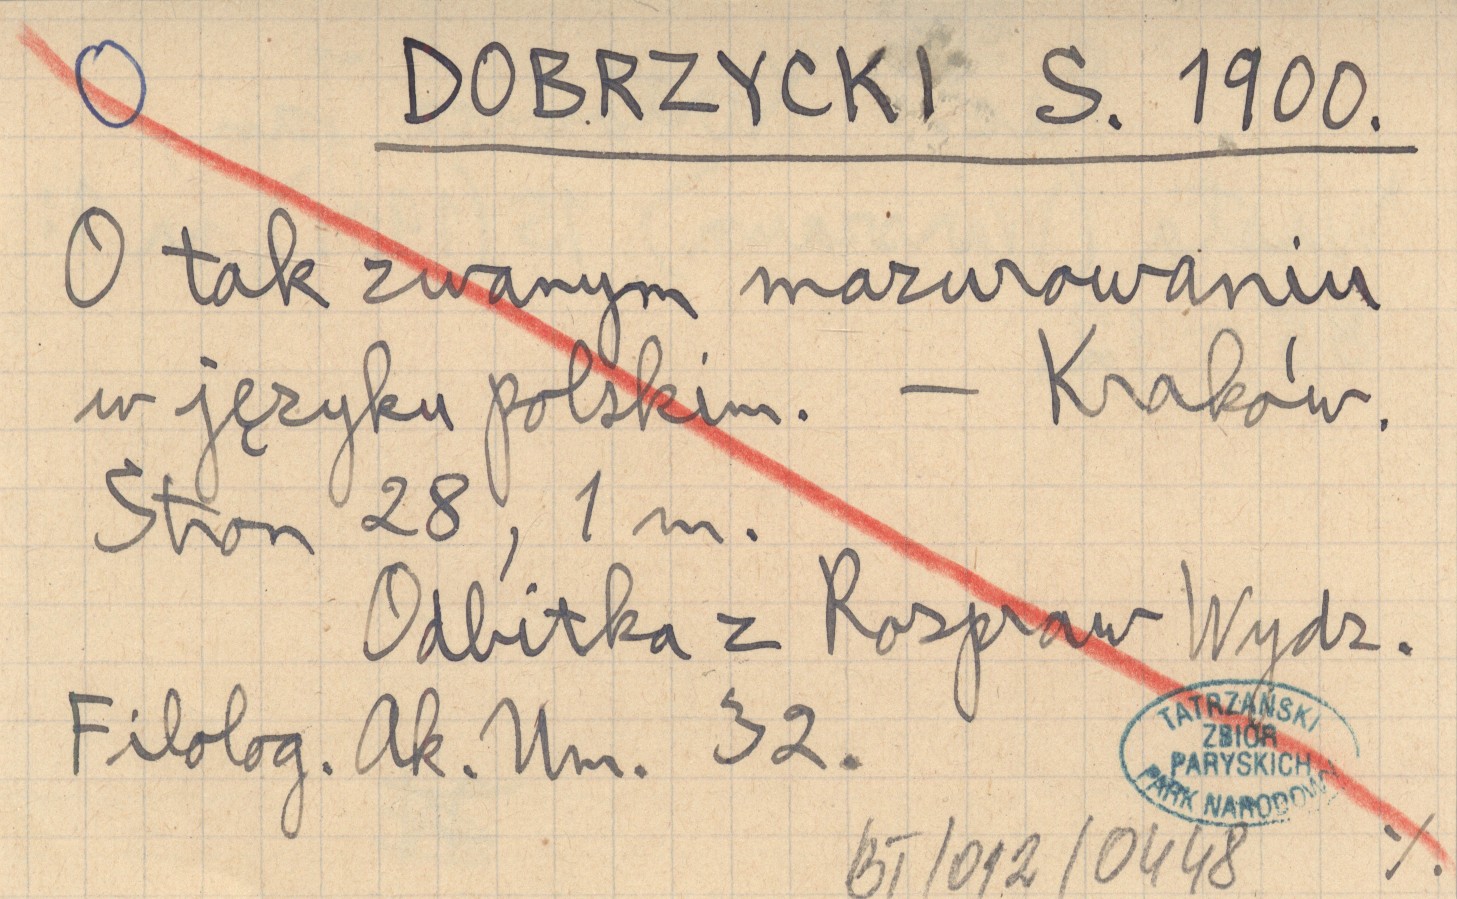 O DOBRZYCKI S. 1900.
O tak zwanym mazurowaniu
w języku polskim. — Kraków.
Stron 28, 1 m.
Odbitka z Rozpraw Wydz.
Filolog. Ak. Um. 32.
TATRZAŃSKI
ZBIÓR
PARYSKICH
PARK NARODOWY
BT/012/0448 ./.